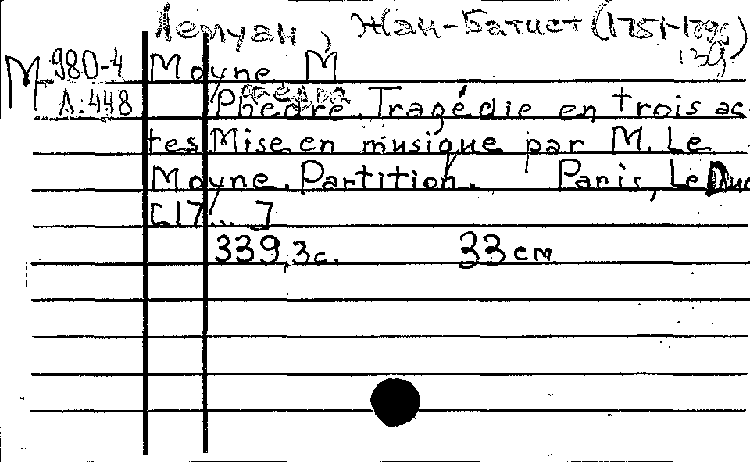 Лемуан, Жан-Батист (1751-1796
M 980-4 Moyne M
A:448 Phèdre. Tragédie en trois ac-
tes Mise en musique par M. Le
Moyne. Partition. Paris, Le Duc
[17...]
339,3c. 33 cm